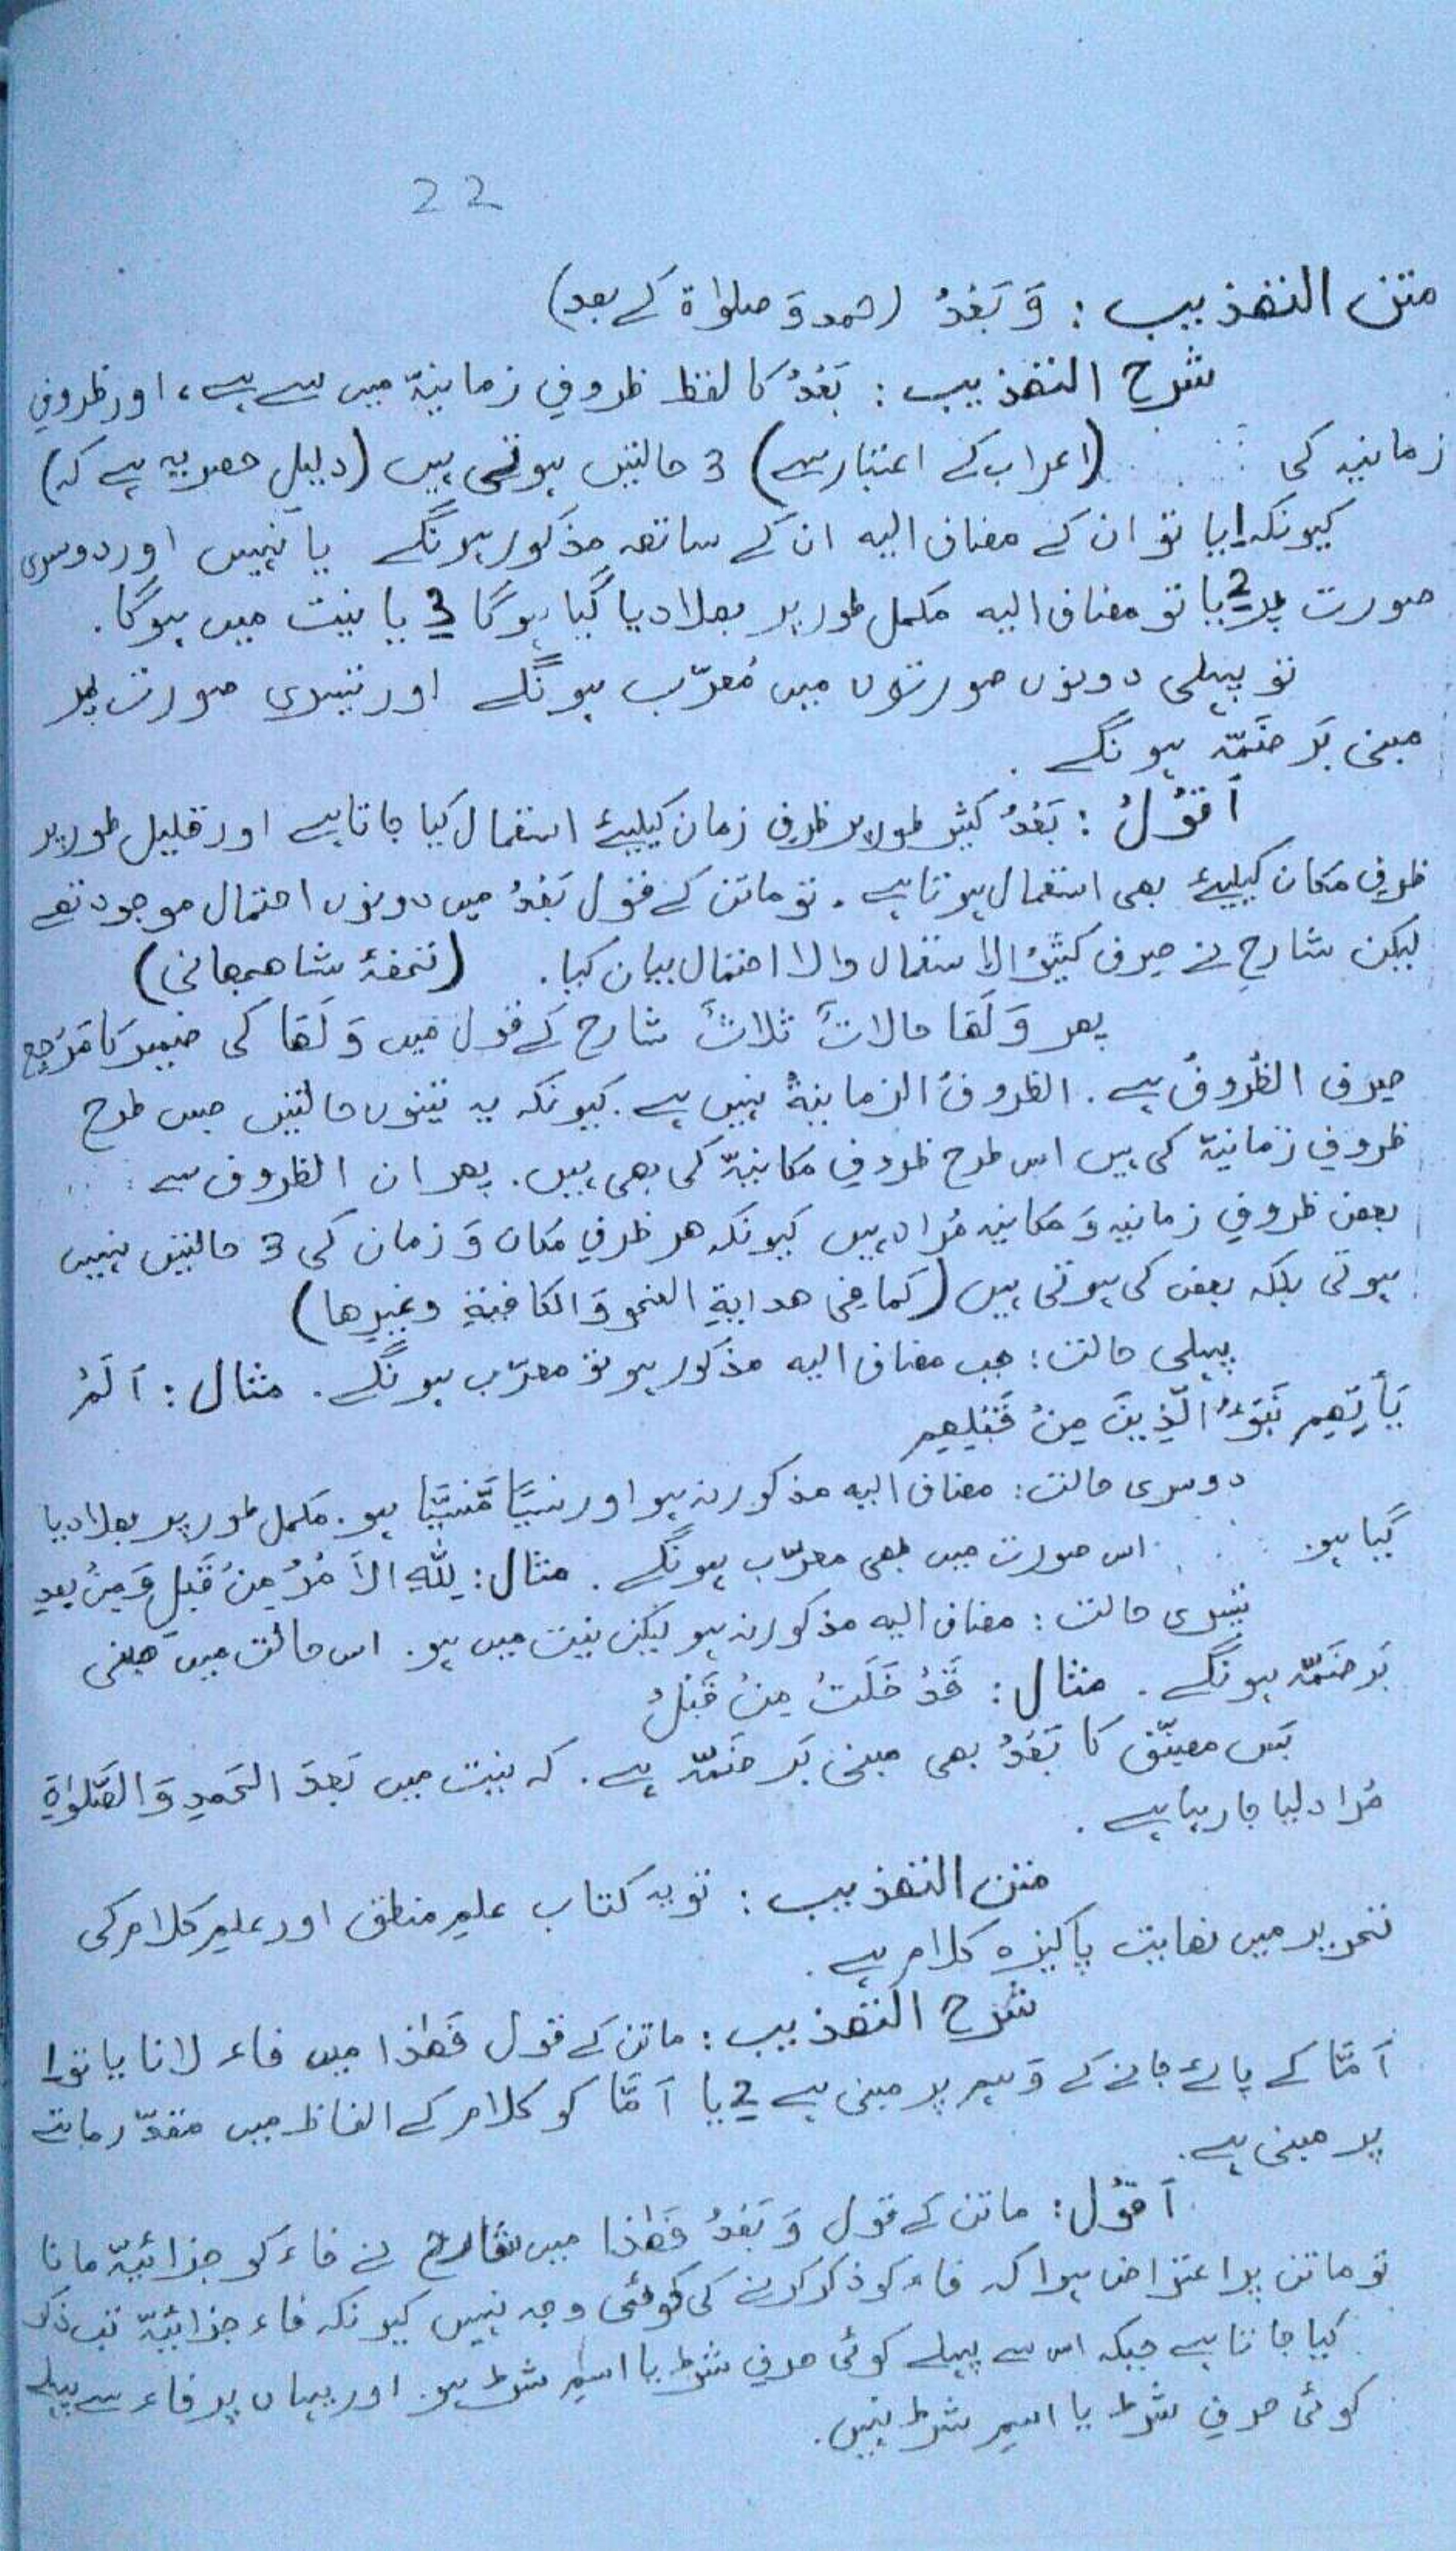 22
متن التھذیب : وَ بَعْدُ (حمد وَ صلوٰة کے بعد)
شرح التھذیب : بَعْدُ کا لفظ ظروفِ زمانیّہ میں سے ہے، اور ظروفِ
زمانیہ کی (اعراب کے اعتبار سے) 3 حالتیں ہوتی ہیں (دلیلِ حصر یہ ہے کہ)
کیونکہ 1 یا تو ان کے مضاف الیہ ان کے ساتھ مذکور ہونگے یا نہیں اور دوسری
صورت پر 2 یا تو مضاف الیہ مکمل طور پر بھلا دیا گیا ہوگا 3 یا نیت میں ہوگا.
تو پہلی دونوں صورتوں میں مُعرّب ہونگے اور تیسری صورت پر
مبنی بَر ضَمّہ ہونگے .
اَقُوْلُ : بَعْدُ کثیر طور پر ظرفِ زمان کیلیئے استعمال کیا جاتا ہے اور قلیل طور پر
ظرفِ مکان کیلیئے بھی استعمال ہوتا ہے . تو ماتن کے قول بَعْدُ میں دونوں احتمال موجود تھے
لیکن شارح نے صرف کثیرُ الاستعمال والا احتمال بیان کیا. (تحفۂ شاھجھانی)
پھر وَلَھَا حالاتٌ ثلاثٌ شارح کے قول میں وَلَھَا کی ضمیر کا مَرْجِع
صرف الظُروفُ ہے . الظروفُ الزمانیۃُ نہیں ہے . کیونکہ یہ تینوں حالتیں جس طرح
ظروفِ زمانیۃ کی ہیں اس طرح ظروفِ مکانیّۃ کی بھی ہیں . پھر ان الظروف سے
بعض ظروفِ زمانیہ وَ مکانیہ مُراد ہیں کیونکہ ھر ظرفِ مکان وَ زمان کی 3 حالتیں نہیں
ہوتی بلکہ بعض کی ہوتی ہیں (کَما فِی ھدایۃِ النحو وَ الکافیۃِ وغیرِھا)
پہلی حالت : جب مضاف الیہ مذکور ہو تو معرّب ہونگے . مثال : اَلَمْ
یَأتِھِم نَبَؤُ الَّذِیْنَ مِنْ قَبْلِھِم
دوسری حالت : مضاف الیہ مذکور نہ ہو اور نَسْیًا مَّنسِیًّا ہو . مکمل طور پر بھلا دیا
گیا ہو. اس صورت میں بھی معرّب ہونگے . مثال : لِلّٰہِ الاَمْرُ مِنْ قَبْلٍ وَّمِنْ بعدٍ
تیسری حالت : مضاف الیہ مذکور نہ ہو لیکن نیت میں ہو . اس حالت میں مبنی
بَر ضَمّہ ہونگے . مثال : قَدْ خَلَتْ مِنْ قَبْلُ
بَس مصنّف کا بَعْدُ بھی مبنی بَر ضَمّہ ہے . کہ نیت میں بَعدَ الحَمدِ وَ الصَّلوٰۃِ
مُراد لیا جا رہا ہے .
متن التھذیب : تو یہ کتاب علمِ منطق اور علمِ کلام کی
تحریر میں نھایت پاکیزہ کلام ہے .
شرح التھذیب : ماتن کے قول فَھٰذا میں فاء لانا یا تو 1
اَمَّا کے پائے جانے کے وَہم پر مبنی ہے 2 یا اَمَّا کو کلام کے الفاظ میں مقدّر ماننے
پر مبنی ہے .
اَقُوْل : ماتن کے قول وَ بَعْدُ فَھٰذا میں شارح نے فاء کو جزائیّہ مانا
تو ماتن پر اعتراض ہوا کہ فاء کو ذکر کرنے کی کوئی وجہ نہیں کیونکہ فاء جزائیّہ تب ذکر
کیا جاتا ہے جبکہ اس سے پہلے کوئی حرفِ شرط یا اسمِ شرط ہو . اور یہاں پر فاء سے پہلے
کوئی حرفِ شرط یا اسمِ شرط نہیں .